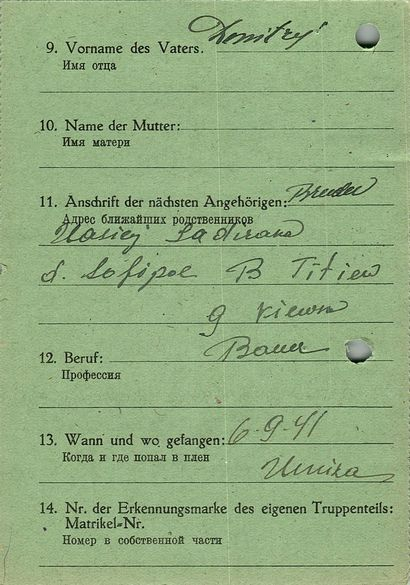 9. Vorname des Vaters. Dmitry
Имя отца
10. Name der Mutter:
Имя матери
11. Anschrift der nächsten Angehörigen: Bruder
Адрес ближайших родственников
d. B
g Kiewsk
12. Beruf: Bauer
Профессия
13. Wann und wo gefangen: 6-9-41
Когда и где попал в плен
14. Nr. der Erkennungsmarke des eigenen Truppenteils:
Matrikel-Nr.
Номер в собственной части